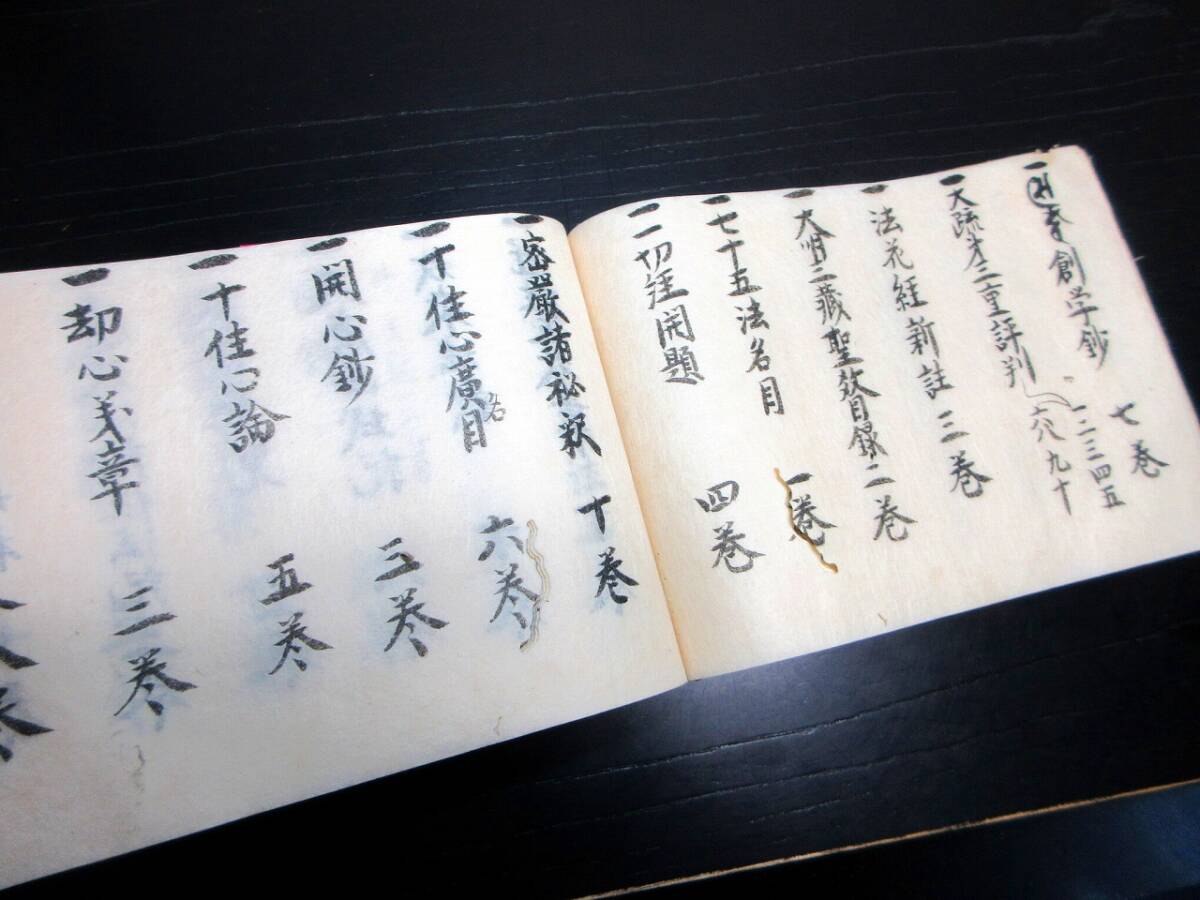 一 創学鈔 七巻
一大疏才三重評判 一二三四五
六八九十
一法花経新註 三巻
一大明三藏聖教目録 二巻
一七十五法名目 一巻
一一切経開題 四巻
一密嚴諸祕釈 十巻
一十住心廣名目 六巻
一開心鈔 三巻
一十住心論 五巻
一却心義章 三巻